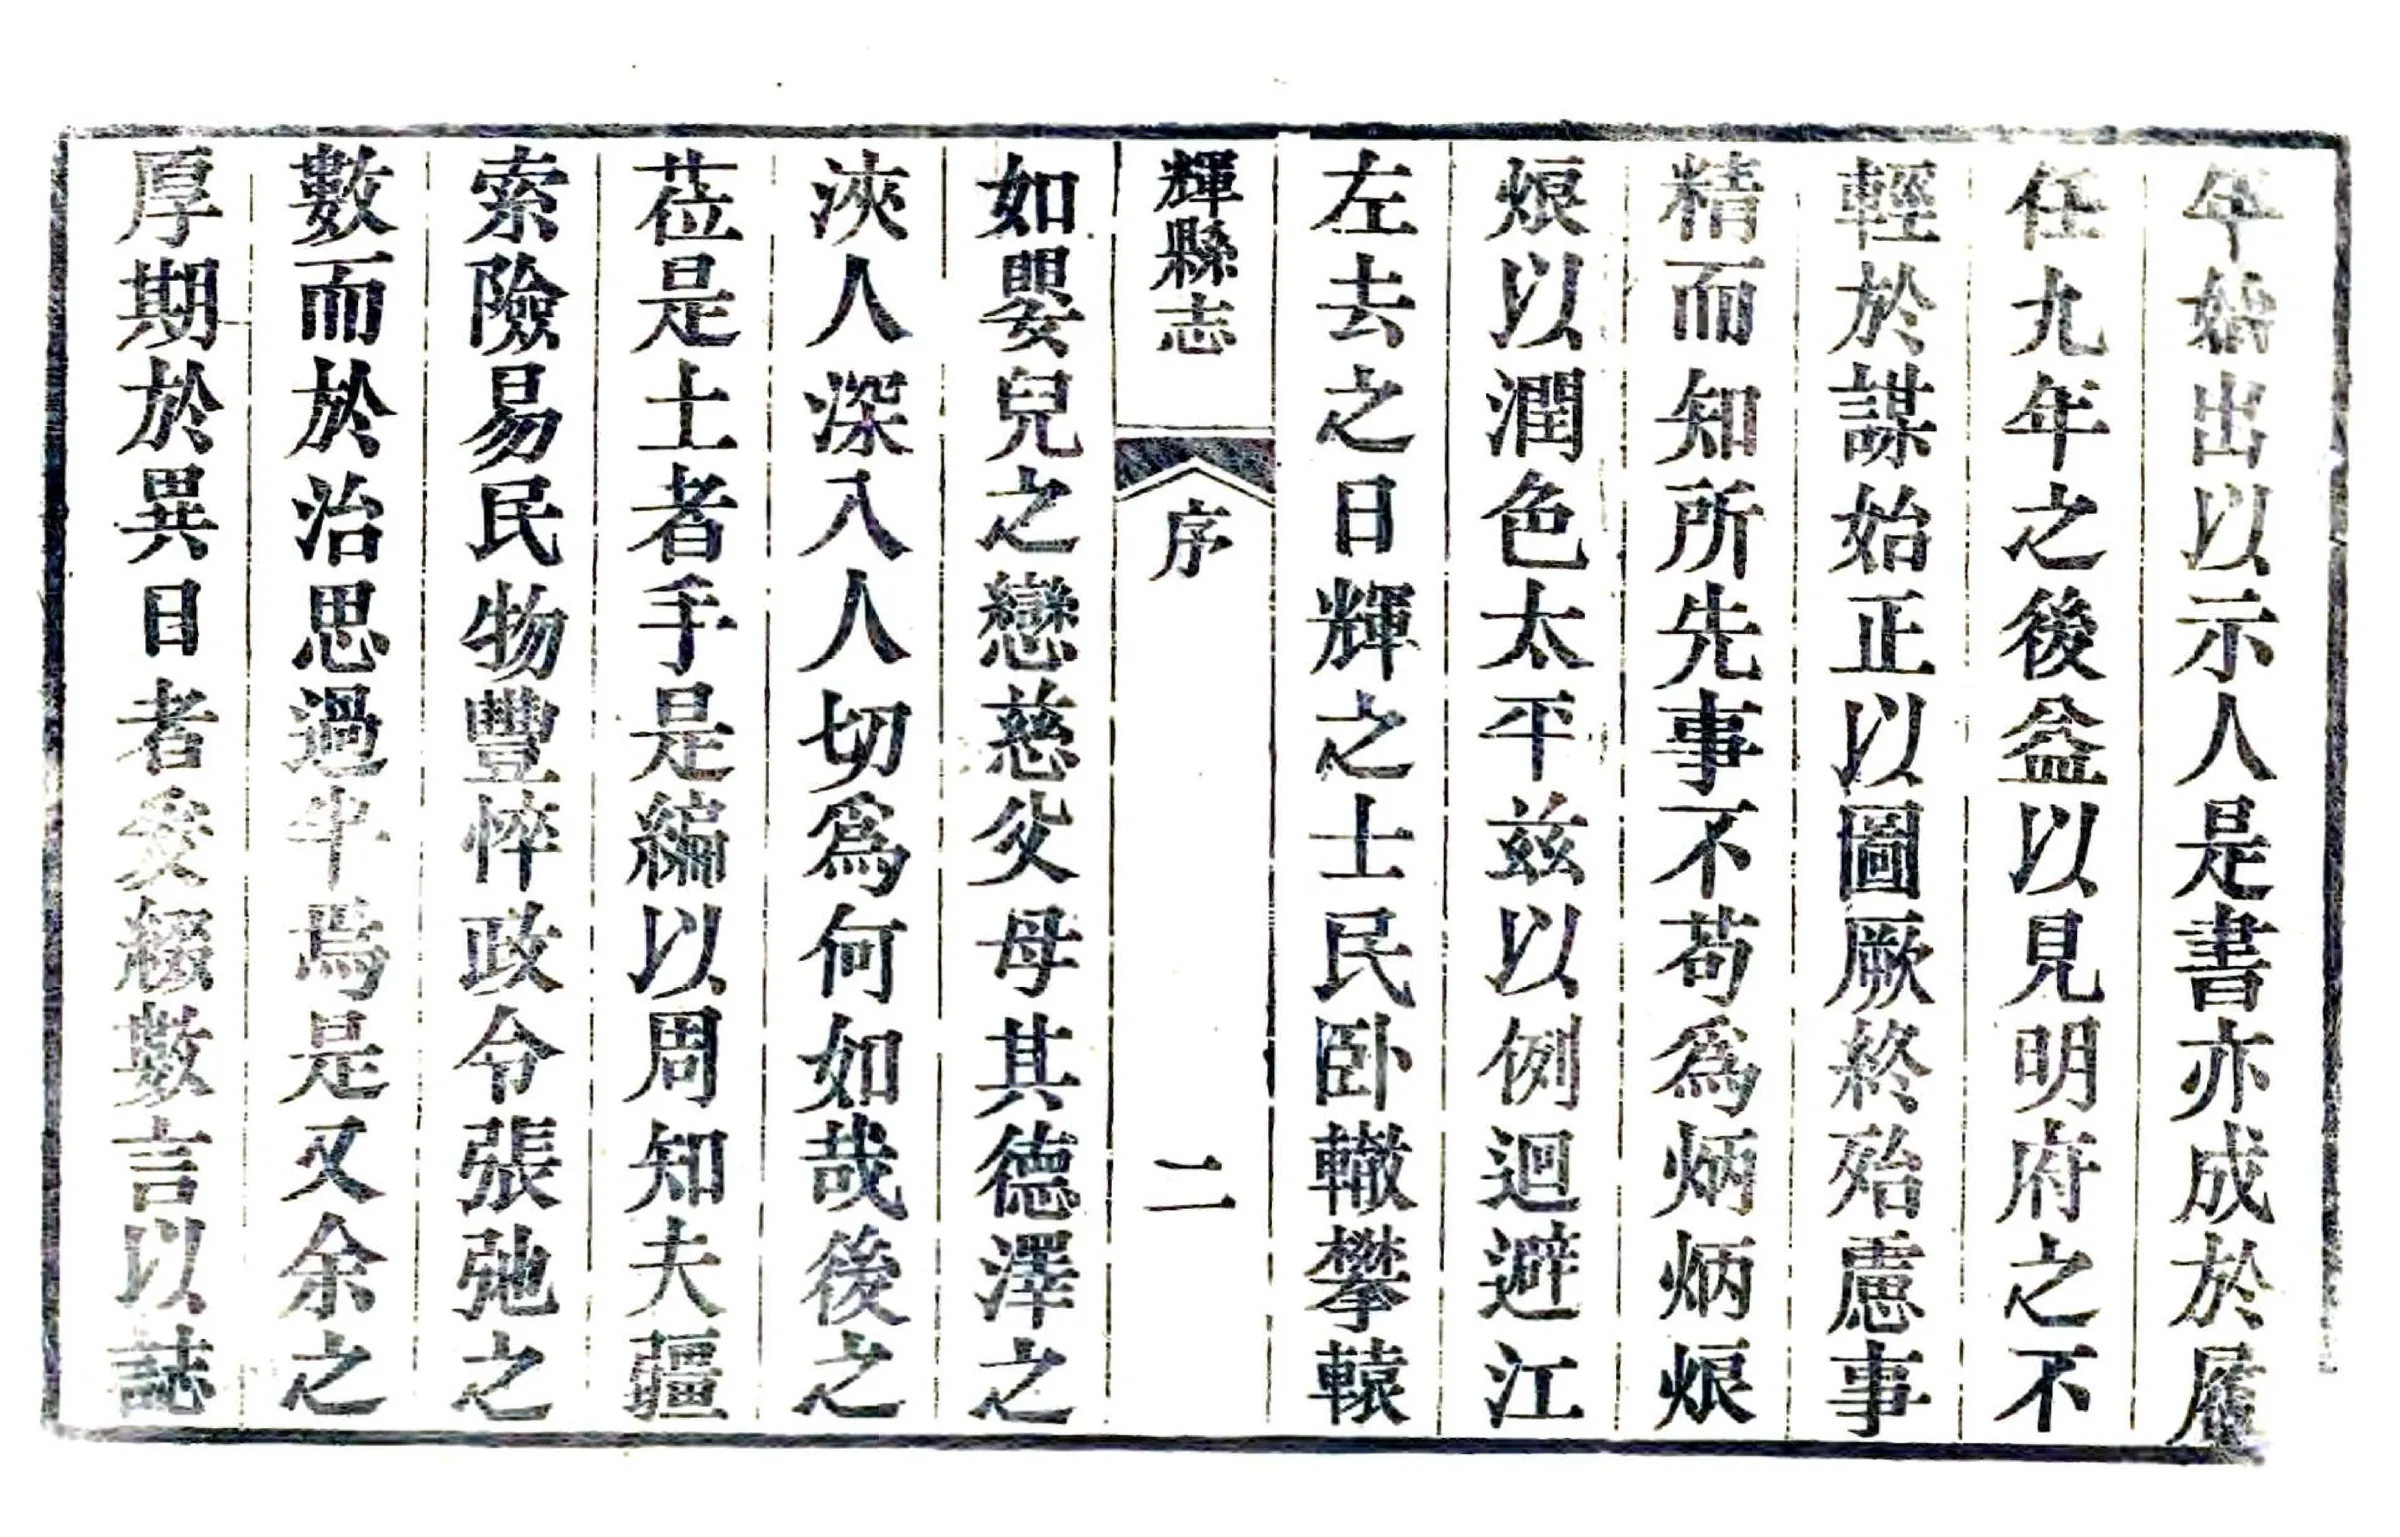 年始出以示人是書亦成於履
任九年之後益以見明府之不
輕於謀始正以圖厥終殆慮事
精而知所先事不苟為炳炳烺
烺以潤色太平兹以例迴避江
左去之日輝之士民卧轍攀轅
輝縣志 序 二
如嬰兒之戀慈父母其德澤之
浹人深入人切爲何如哉後之
莅是土者手是編以周知夫疆
索險易民物豐悴政令張弛之
數而於治思過半焉是又余之
厚期於異目者爰綴數言以誌